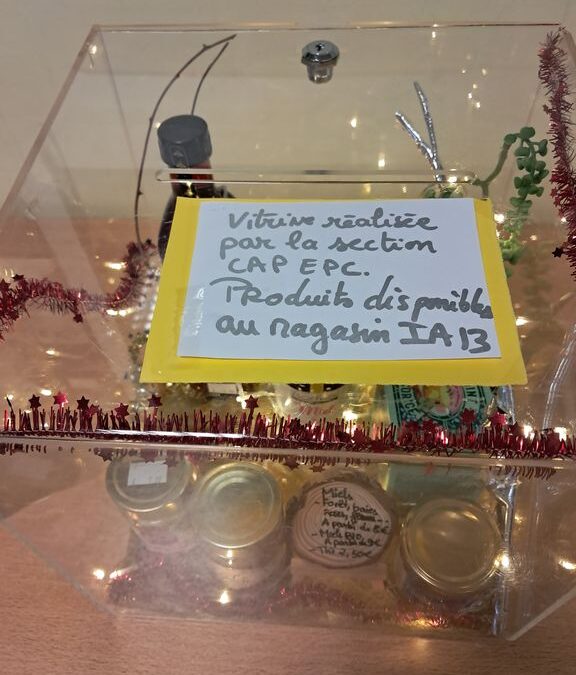 Vitrine réalisée
par la section
CAP EPC.
Produits disponibles
au magasin IA 13
Miel
Miels
- Forêt, baies
A partir de
- Miel BIO
A partir de 9€
Thé 2,50€